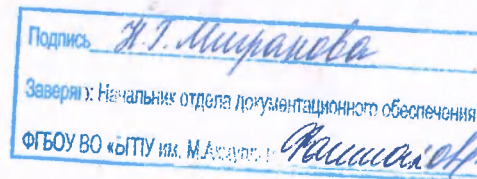 Подпись Н.Г. Миранова
Заверяю: Начальник отдела документационного обеспечения
ФГБОУ ВО «БГПУ им. М.Акмуллы»